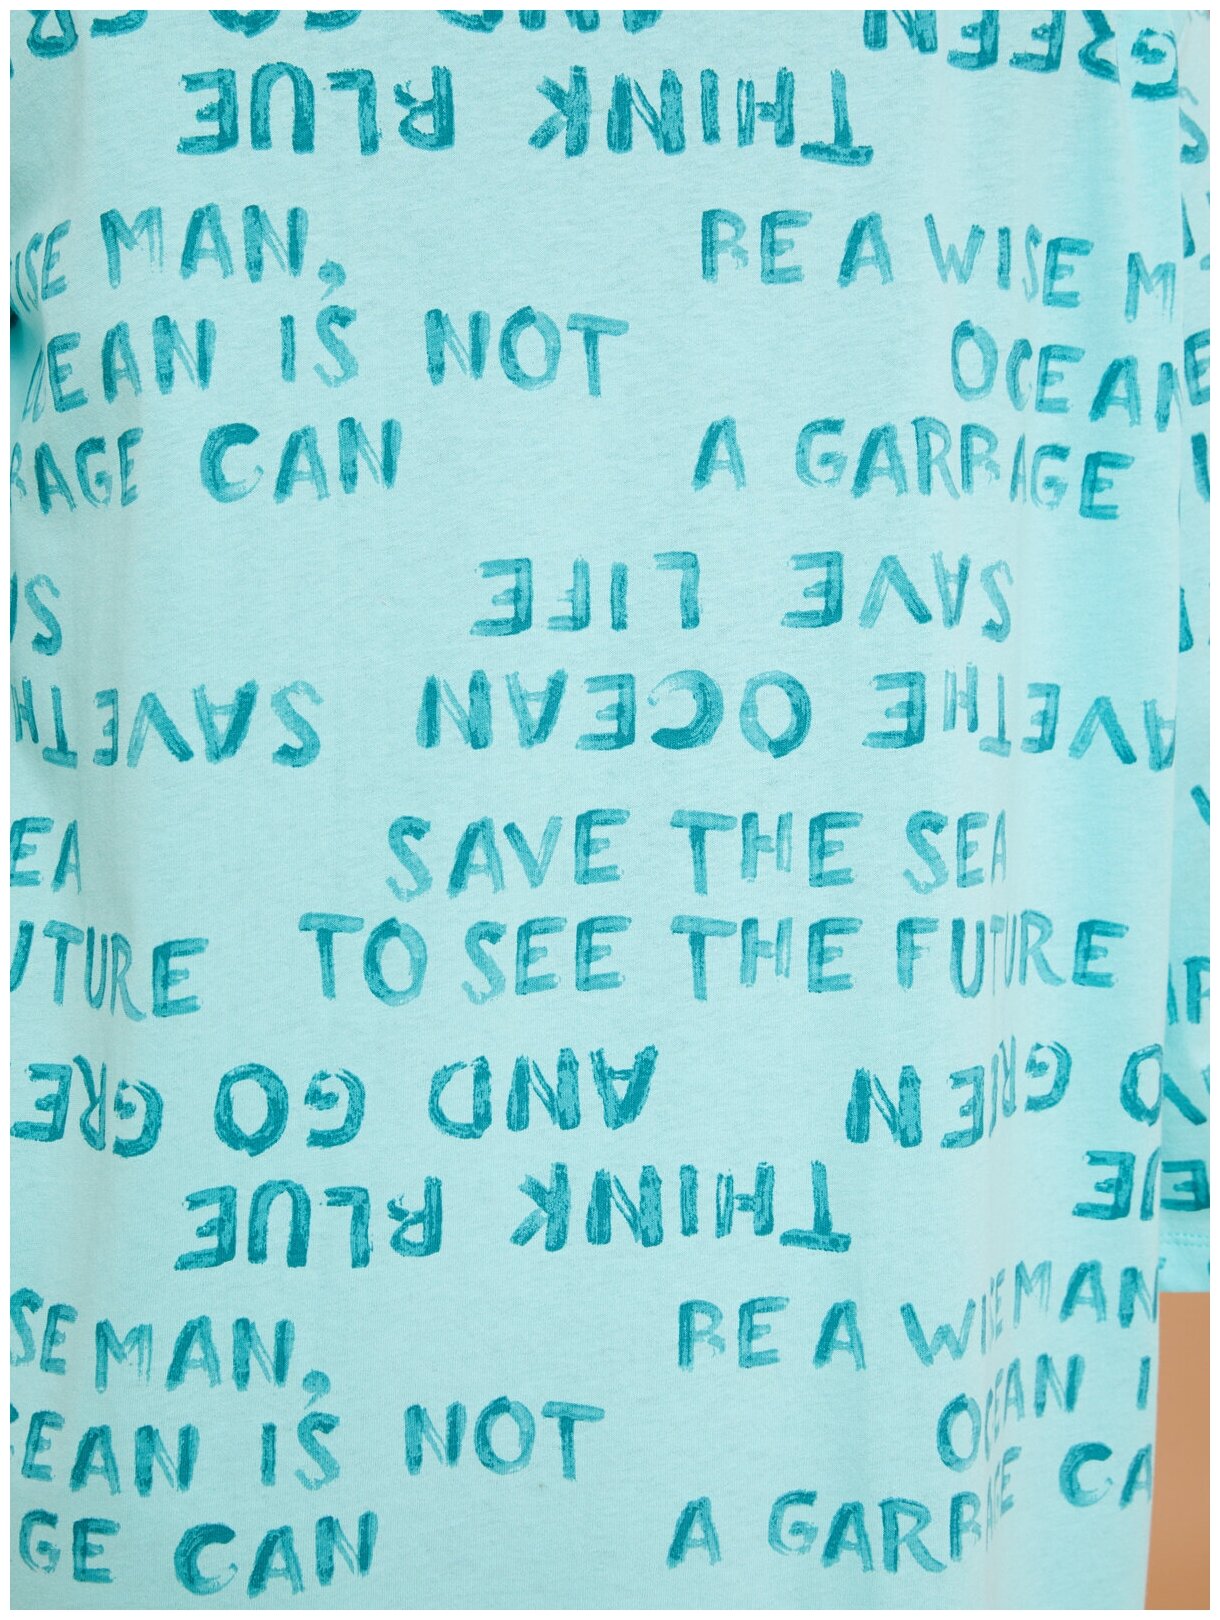 AND GO GREEN
THINK BLUE
WISE MAN, BE A WISE M
OCEAN IS NOT OCEAN
GARBAGE CAN A GARBAGE
SAVE LIFE
SAVE THE OCEAN SAVE TH
SEA SAVE THE SEA
FUTURE TO SEE THE FUTURE
AND GO GREEN GO GRE
THINK BLUE
WISE MAN, BE A WISE MAN
OCEAN IS NOT OCEAN I
GE CAN A GARBAGE CA